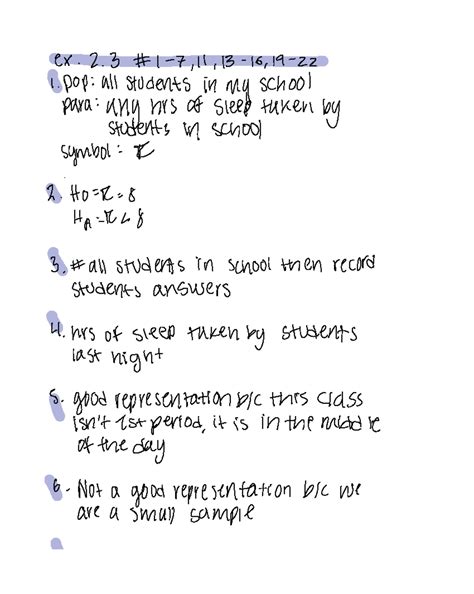 ex. 2.3 #1-7,11,13-16,19-22
1. pop: all students in my school
para: avg hrs of sleep taken by
students in school
symbol: π
2. Ho = π = 8
HA = π < 8
3. # all students in school then record
students answers
4. hrs of sleep taken by students
last night
5. good representation b/c this class
isn't 1st period, it is in the middle
of the day
6. Not a good representation b/c we
are a small sample